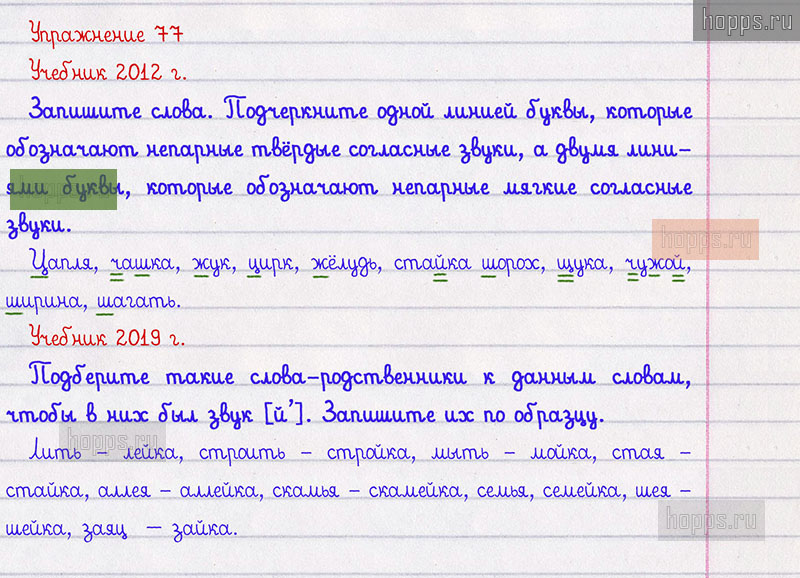 hopps.ru
Упражнение 77
Учебник 2012 г.
Запишите слова. Подчеркните одной линией буквы, которые
обозначают непарные твёрдые согласные звуки, а двумя лини-
ями буквы, которые обозначают непарные мягкие согласные
звуки.
hopps.ru
Цапля, чашка, жук, цирк, жёлудь, стайка шорох, щука, чужой,
ширина, шагать.
Учебник 2019 г.
Подберите такие слова-родственники к данным словам,
чтобы в них был звук [й’]. Запишите их по образцу.
hopps.ru
Лить – лейка, строить – стройка, мыть – мойка, стая –
стайка, аллея – аллейка, скамья – скамейка, семья, семейка, шея –
шейка, заяц — зайка.
hopps.ru